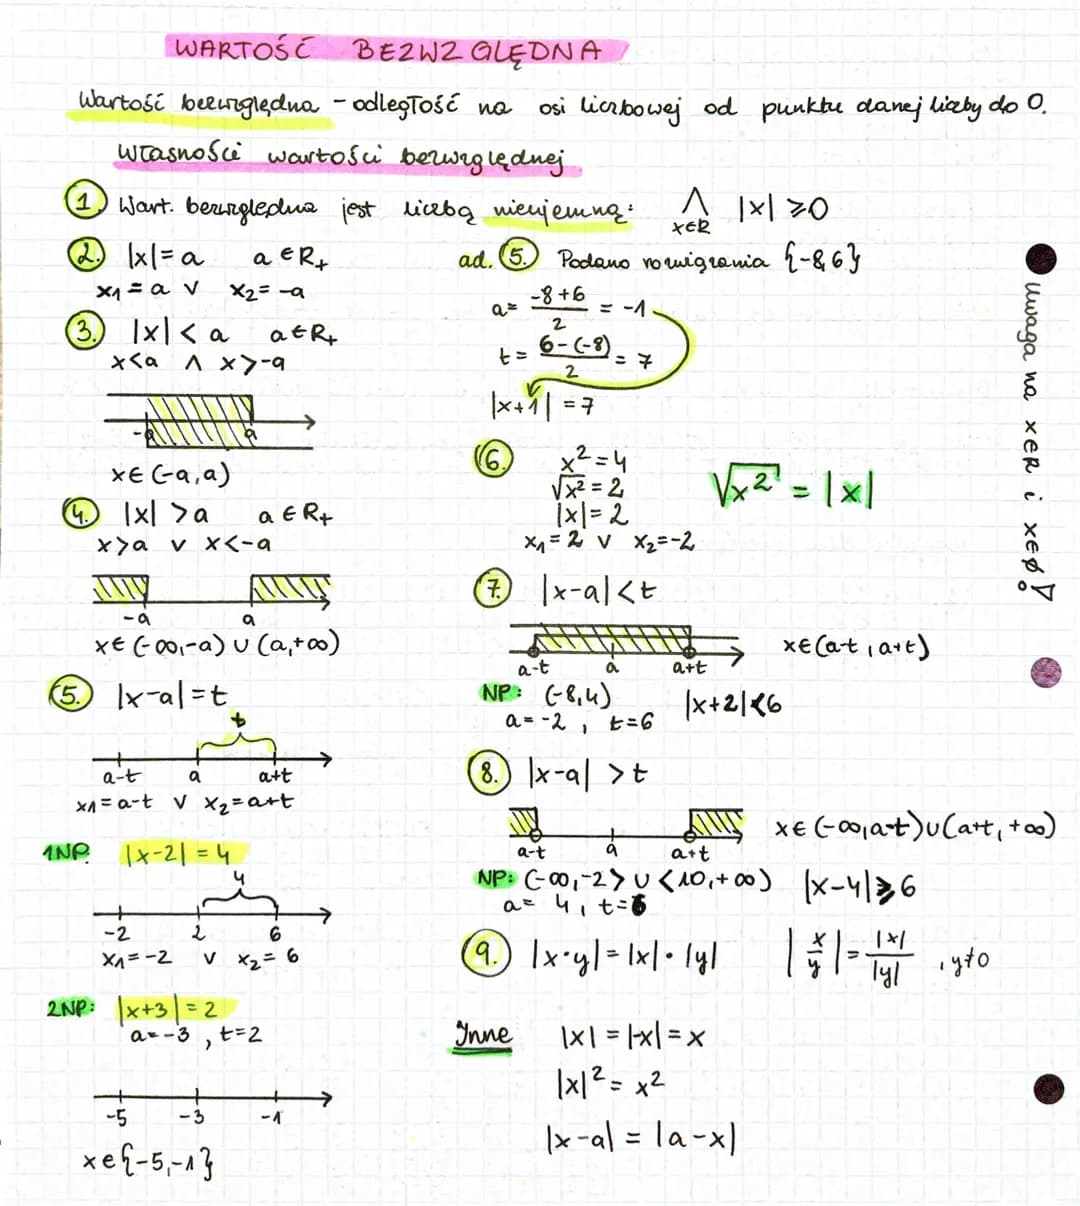 WARTOŚĆ BEZWZGLĘDNA
Wartość bezwzględna - odległość na osi liczbowej od punktu danej liczby do 0.
Własności wartości bezwzględnej
1. Wart. bezwzględna jest liczbą nieujemną: ⋀ x∈R |x| ≥0
2. |x|=a a∈R+
x1=a ∨ x2=-a
3. |x|<a a∈R+
x<a ∧ x>-a
-a a
x∈(-a,a)
4. |x|>a a∈R+
x>a ∨ x<-a
-a a
x∈(-∞,-a)∪(a,+∞)
5. |x-a|=t
t
a-t a a+t
x1=a-t ∨ x2=a+t
1NP. |x-2|=4
4
-2 2 6
x1=-2 ∨ x2=6
2NP: |x+3|=2
a=-3, t=2
-5 -3 -1
x∈{-5,-1}
ad. 5. Podano rozwiązania {-8,6}
a= -8+6 / 2 = -1
t= 6-(-8) / 2 = 7
|x+1|=7
6. x²=4
√x²=2
|x|=2
x1=2 ∨ x2=-2
√x² = |x|
7. |x-a|<t
a-t a a+t
x∈(a-t, a+t)
NP: (-8,4) |x+2|<6
a=-2, t=6
8. |x-a|>t
a-t a a+t
x∈(-∞,a-t)∪(a+t,+∞)
NP: (-∞,-2>∪<10,+∞) |x-4|≥6
a=4, t=6
9. |x·y|=|x|·|y| |x/y|=|x|/|y|, y≠0
Inne |x|=|-x|=x
|x|²=x²
|x-a|=|a-x|
Uwaga na x∈R i x∈∅!